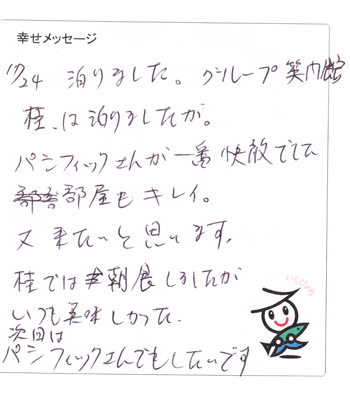 幸せメッセージ
10/24 泊りました。グループ 笑内館
桂、は泊りましたが。
パシフィックさんが一番快敵でした
部屋もキレイ。
又来たいと思います。
桂では朝展しましたが
いつも美味しかった.
次回は
パシフィックさんでもしたいです